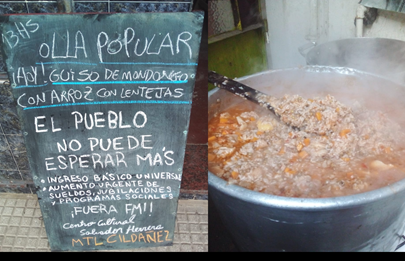 18HS
OLLA POPULAR
HOY! GUISO DE MONDONGO
CON ARROZ CON LENTEJAS
EL PUEBLO
NO PUEDE
ESPERAR MÁS
• INGRESO BÁSICO UNIVERSAL
• AUMENTO URGENTE DE
SUELDOS, JUBILACIONES
Y PROGRAMAS SOCIALES
¡FUERA FMI!!
Centro Cultural
Salvador Herrera
MTL CILDAÑEZ